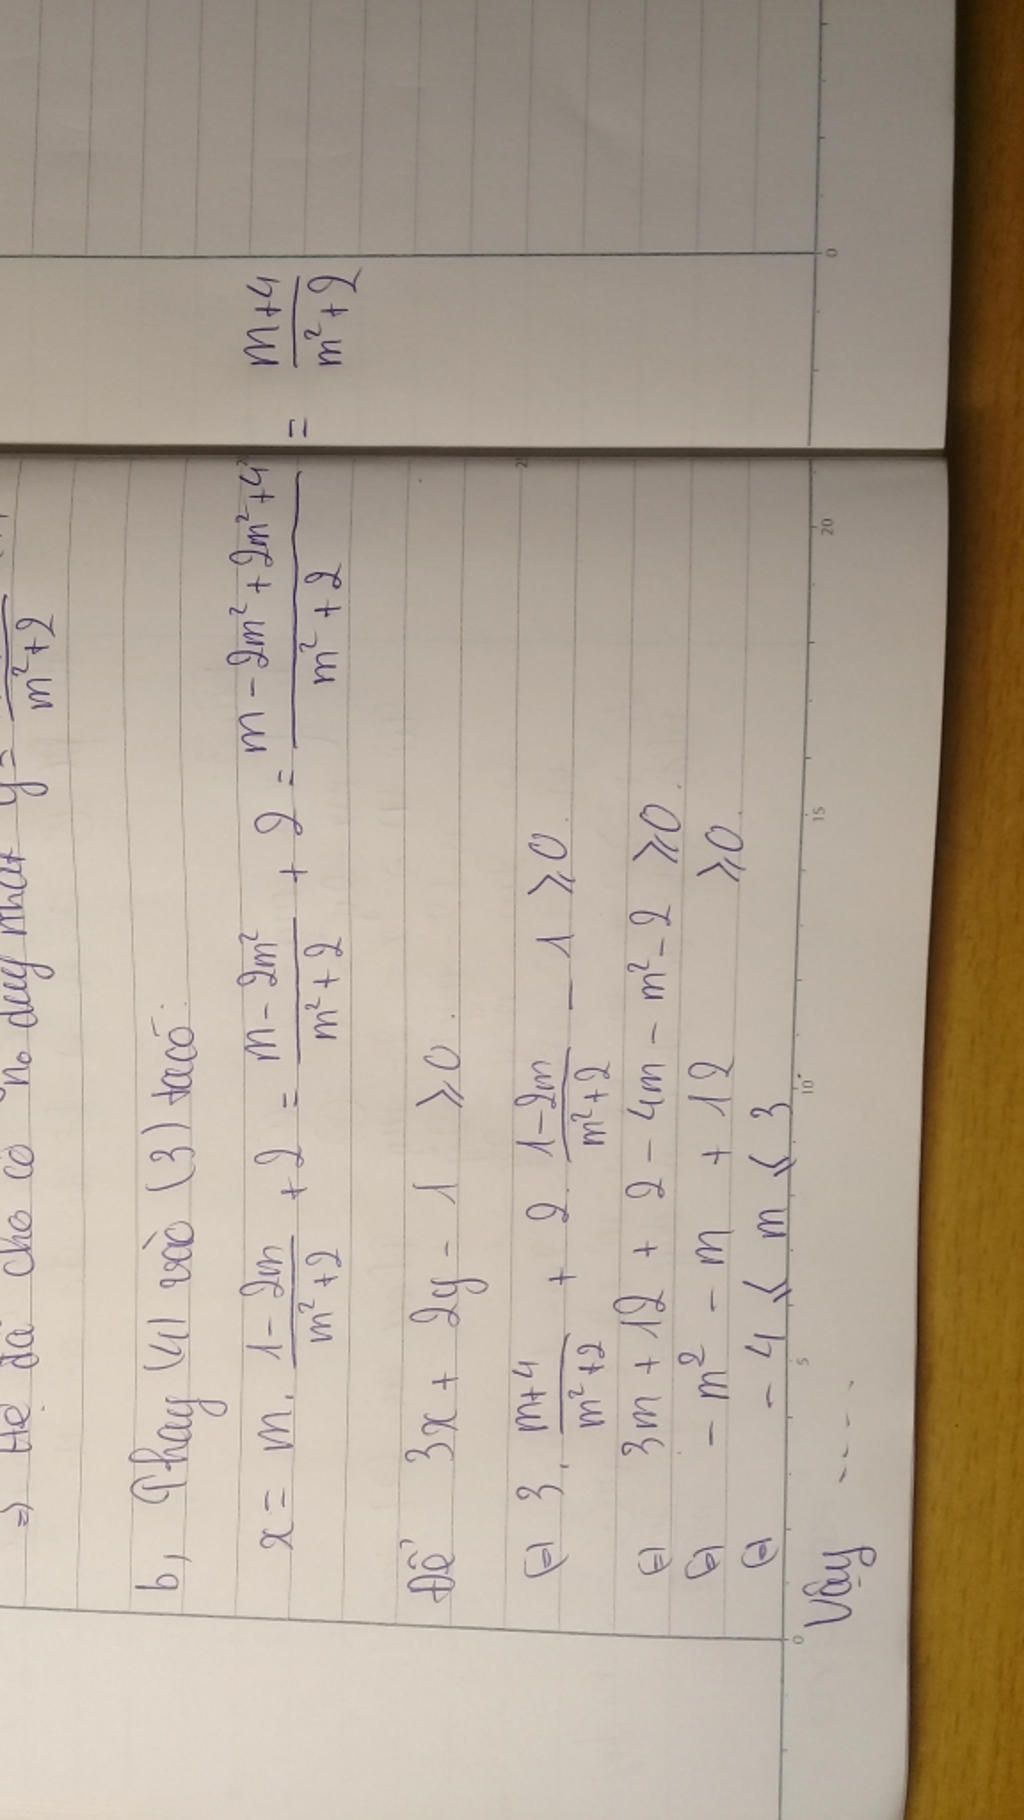 m²+2
=) Hệ đã cho có n₀ duy nhất y =
b, Thay (4) vào (3) ta có:
x = m. \frac{1-2m}{m²+2} + 2 = \frac{m-2m²}{m²+2} + 2 = \frac{m-2m²+2m²+4}{m²+2} = \frac{m+4}{m²+2}
Để 3x + 2y - 1 ⩾ 0.
(=) 3. \frac{m+4}{m²+2} + 2. \frac{1-2m}{m²+2} - 1 ⩾ 0.
(=) 3m + 12 + 2 - 4m - m² - 2 ⩾ 0.
(=) - m² - m + 12 ⩾ 0.
(=) - 4 ⩽ m ⩽ 3
0 5 10 15 20
Vậy ----.
0